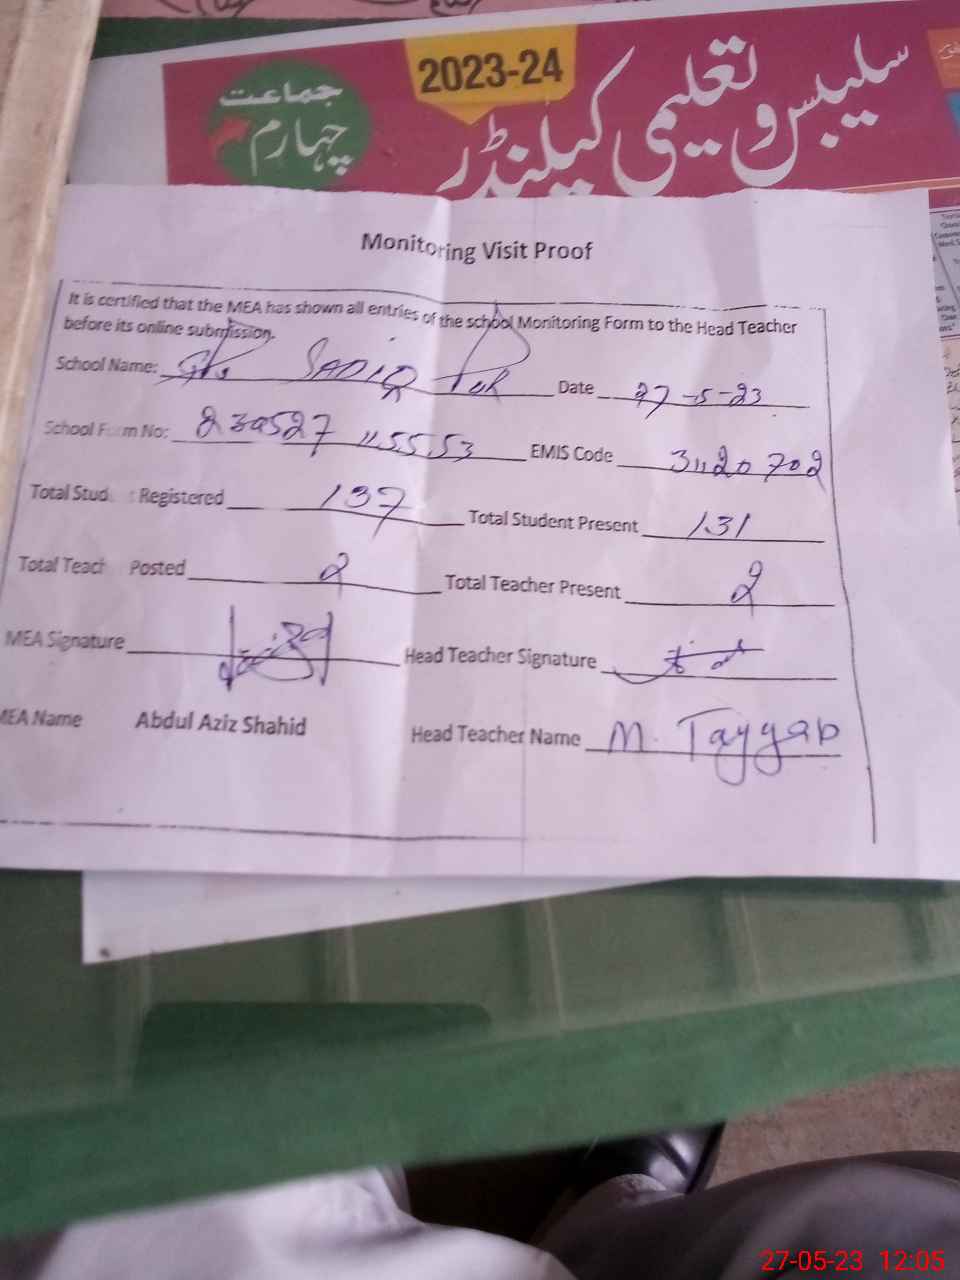 2023-24
جماعت
چہارم
سلیبس و تعلیمی کیلنڈر
Monitoring Visit Proof
It is certified that the MEA has shown all entries of the school Monitoring Form to the Head Teacher
before its online submission.
School Name: SADIQ PUR Date 27-5-23
School Form No: 230527 115553 EMIS Code 31120702
Total Stud t Registered 137 Total Student Present 131
Total Teach Posted 2 Total Teacher Present 2
MEA Signature Head Teacher Signature
MEA Name Abdul Aziz Shahid Head Teacher Name M. Tayyab
27-05-23 12:05